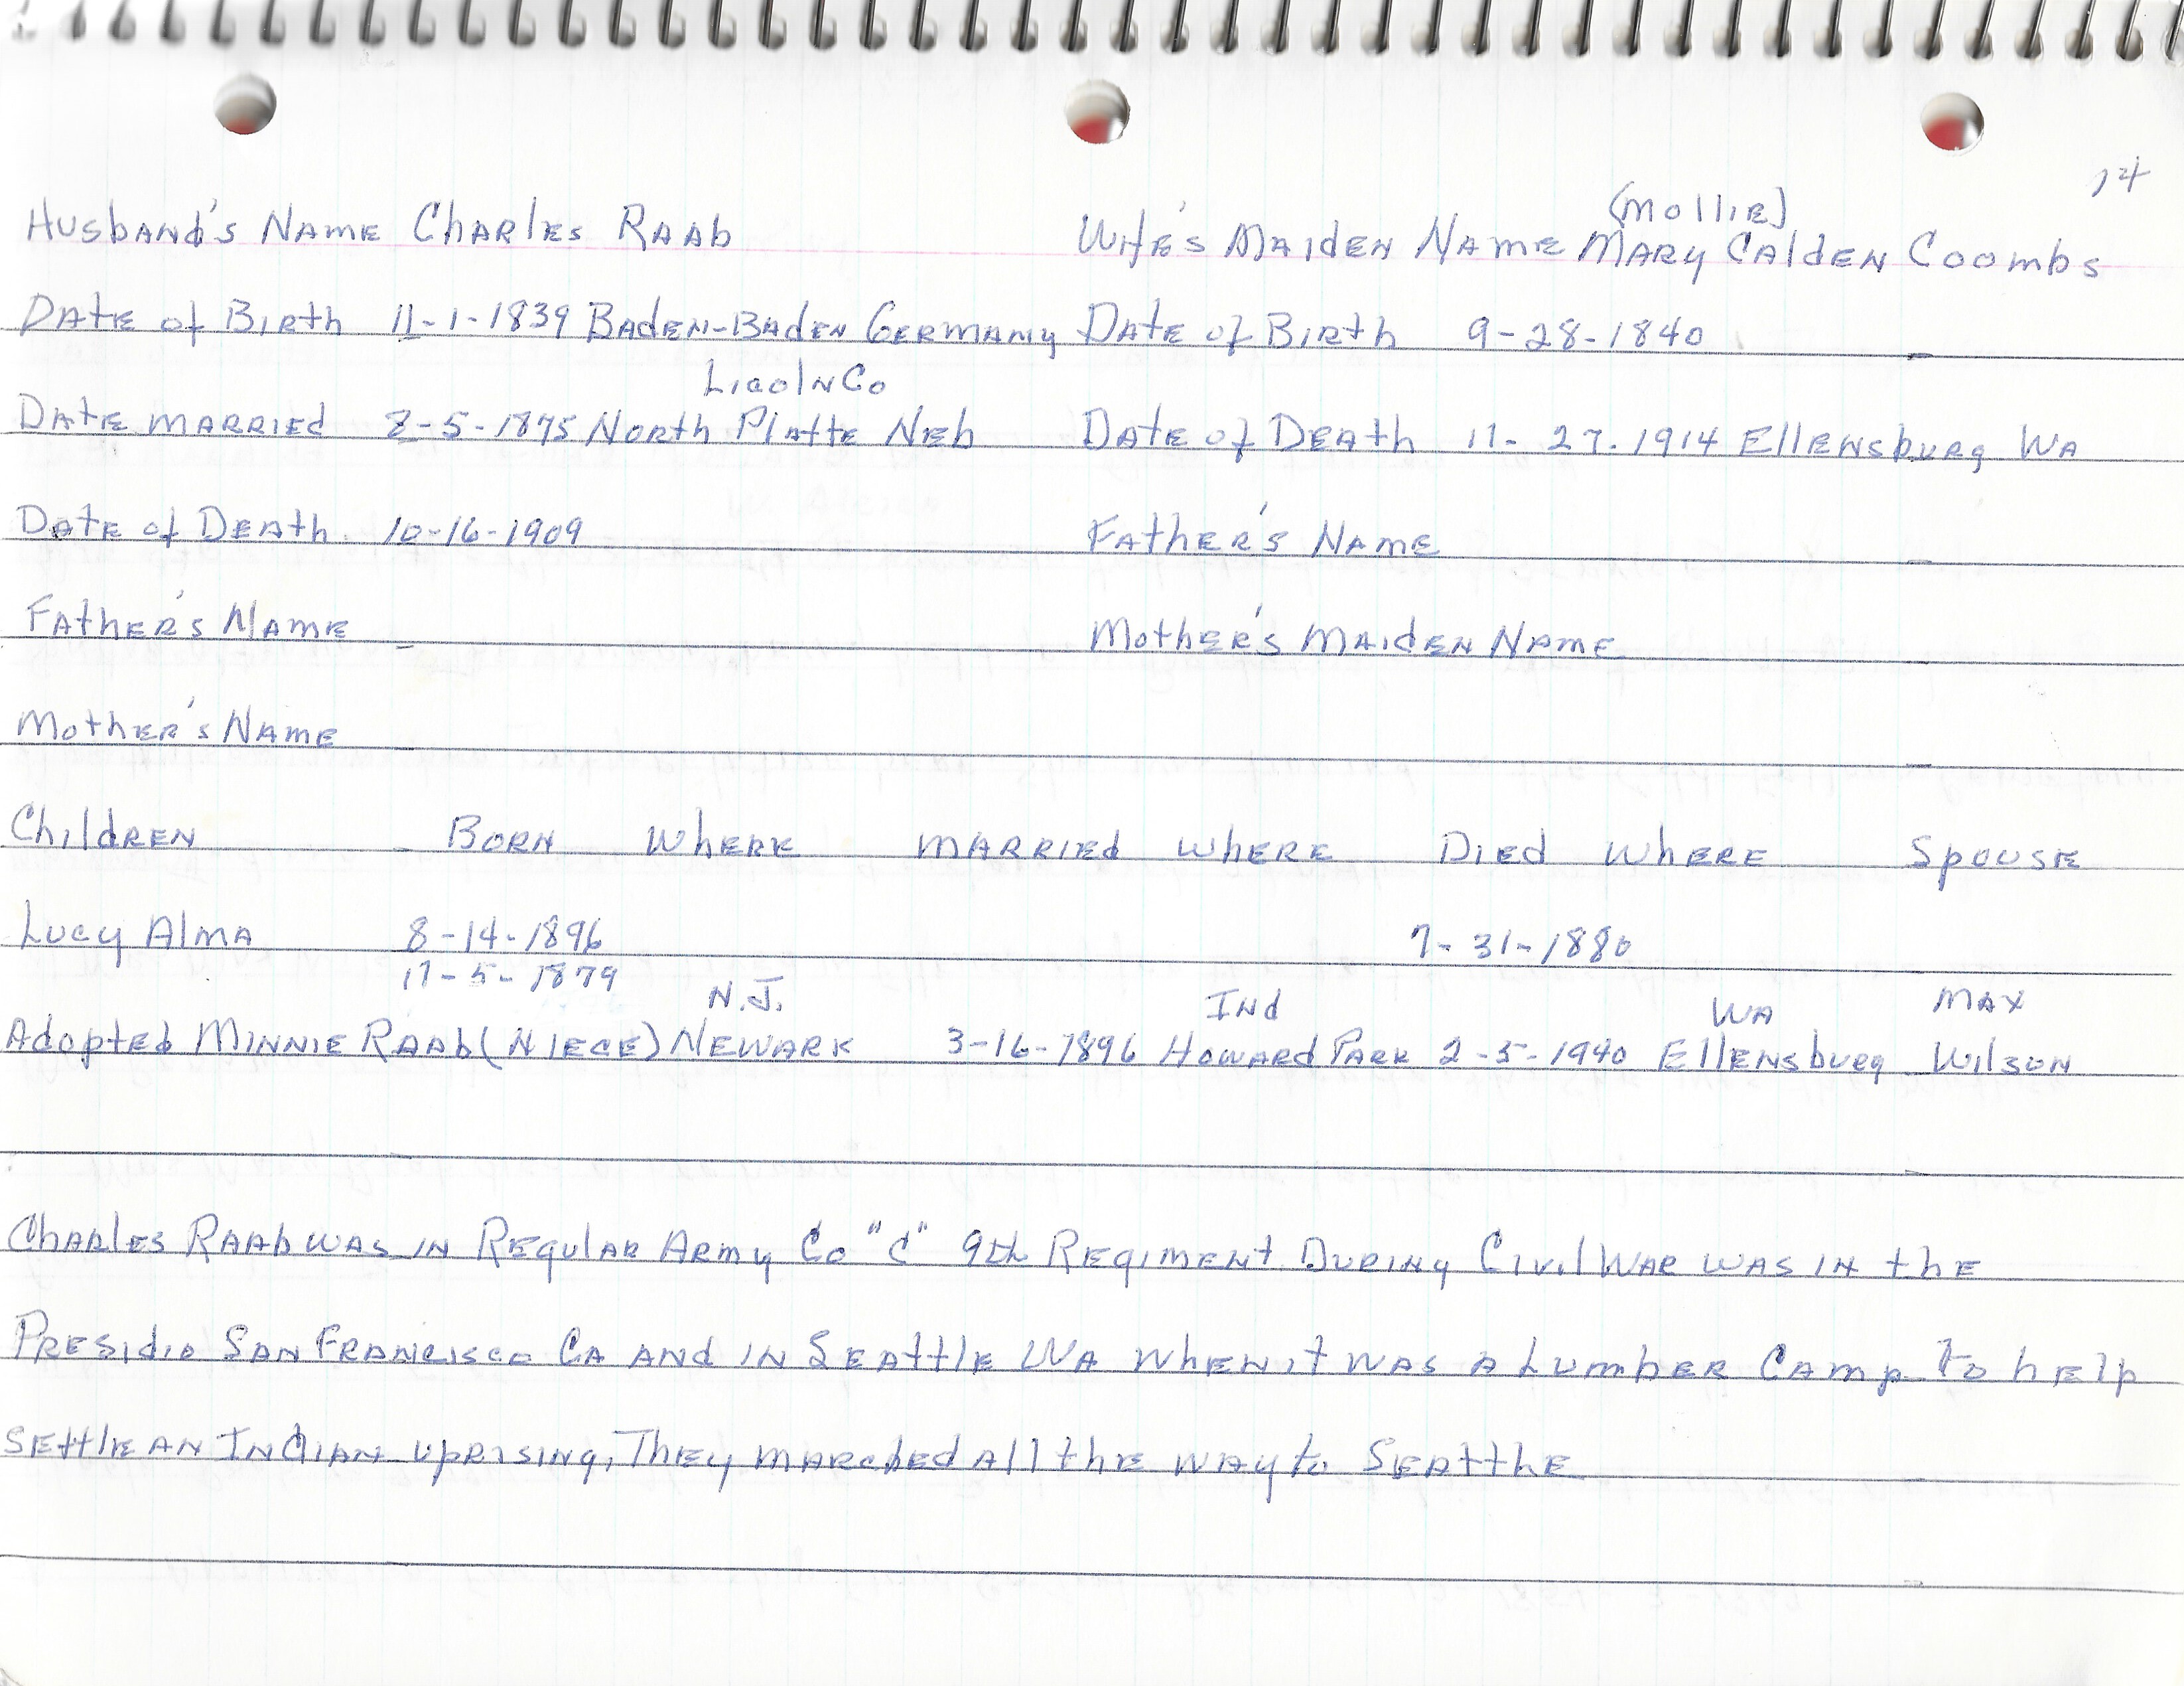 14
(Mollie)
Husband's Name Charles Raab Wife's Maiden Name Mary Calden Coombs
Date of Birth 11-1-1839 Baden-Baden Germany Date of Birth 9-28-1840
Licoln Co
Date Married 2-5-1875 North Platte Neb Date of Death 11-27-1914 Ellensburg Wa
Date of Death 10-16-1909 Father's Name
Father's Name Mother's Maiden Name
Mother's Name
Children Born Where Married Where Died Where Spouse
Lucy Alma 8-14-1896 7-31-1880
11-5-1879 N.J. Ind Wa Max
Adopted Minnie Raab (Niece) Newark 3-16-1896 Howard Park 2-5-1940 Ellensburg Wilson
Charles Raab was in Regular Army Co "C" 9th Regiment During Civil War was in the
Presidio San Francisco Ca and in Seattle Wa when it was a Lumber Camp to help
settle an Indian uprising, They marched all the way to Seatthe